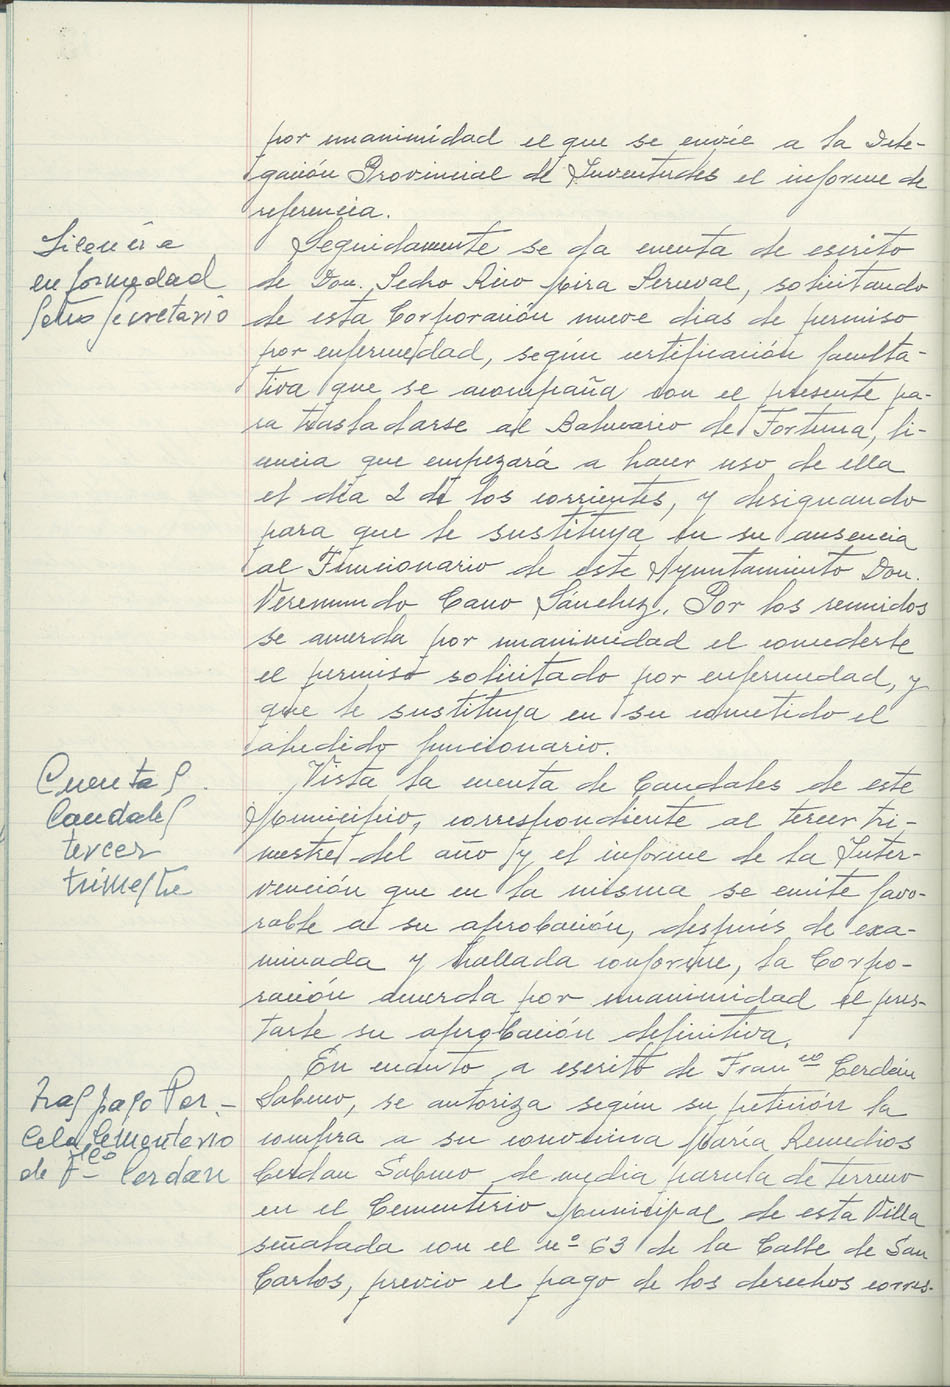 por unanimidad el que se envíe a la Dele-
gación Provincial de Juventudes el informe de
referencia.
Licencia
enfermedad
Sr Secretario
Seguidamente se da cuenta de escrito
de Don Pedro Rico Mira Perceval, solicitando
de esta Corporación nueve dias de permiso
por enfermedad, según certificación faculta-
tiva que se acompaña con el presente pa-
ra trasladarse al Balneario de Fortuna, li-
cencia que empezará a hacer uso de ella
el día 2 de los corrientes, y designando
para que le sustituya en su ausencia
al Funcionario de este Ayuntamiento Don
Veremundo Cano Sánchez. Por los reunidos
se acuerda por unanimidad el concederle
el permiso solicitado por enfermedad, y
que le sustituya en su cometido el
aludido funcionario.
Cuentas
Caudales
tercer
trimestre
Vista la cuenta de Caudales de este
Municipio, correspondiente al tercer tri-
mestre del año y el informe de la Inter-
vención que en la misma se emite favo-
rable a su aprobación, después de exa-
minada y hallada conforme, la Corpo-
ración acuerda por unanimidad el pres-
tarle su aprobación definitiva.
pago Par-
cela Cementerio
de Fco Cerdán
En cuanto a escrito de Franco Cerdán
Sabuco, se autoriza según su petición la
compra a su convecina María Remedios
Cerdan Sabuco de media parcela de terreno
en el Cementerio Municipal de esta Villa
señalada con el nº 63 de la Calle de San
Carlos, previo el pago de los derechos corres-